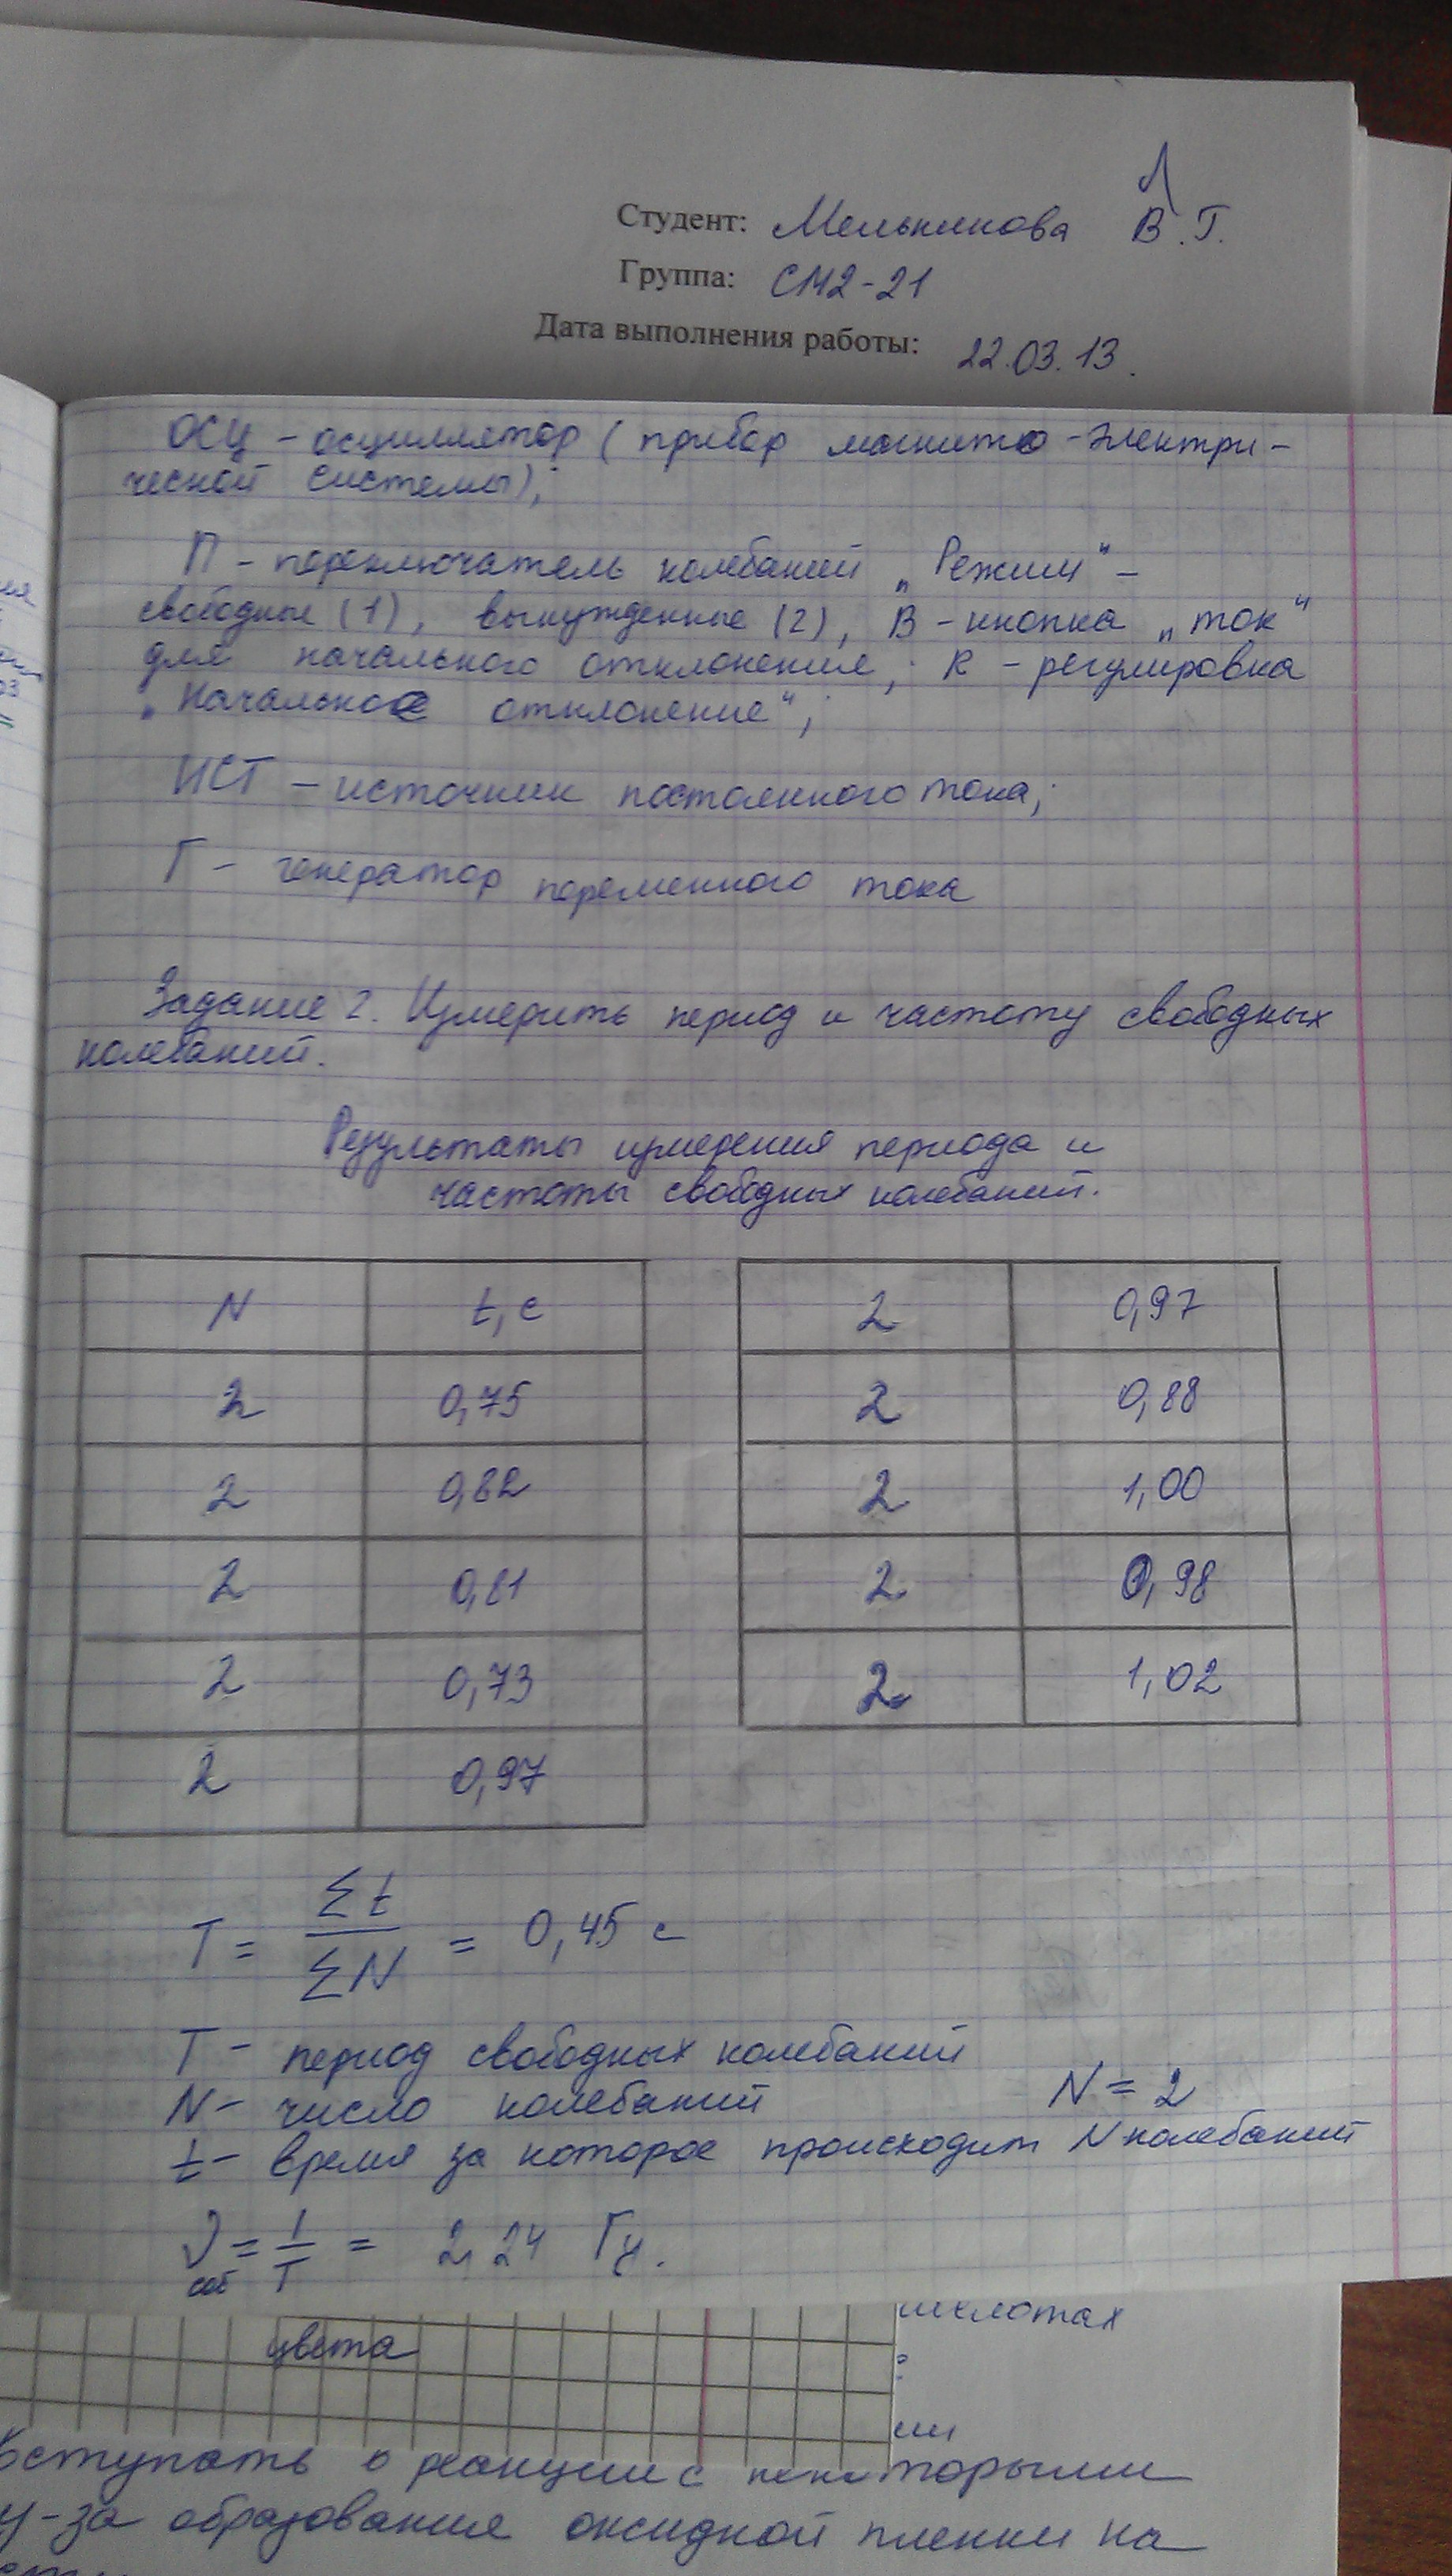 Студент: Мельникова В.Г.
Группа: СМ2-21
Дата выполнения работы: 22.03.13.
ОСЦ - осциллятор (прибор магнито-электри-
ческой системы);
П - переключатель колебаний „Режим" -
свободные (1), вынужденные (2), В - кнопка „ток"
для начального отклонения; R - регулировка
„Начальное отклонение";
ИСТ - источник постоянного тока;
Г - генератор переменного тока
Задание 2. Измерить период и частоту свободных
колебаний.
Результаты измерения периода и
частоты свободных колебаний.
N t, с
2 0,75
2 0,82
2 0,81
2 0,73
2 0,97
2 0,97
2 0,88
2 1,00
2 0,98
2 1,02
T = Σt / ΣN = 0,45 с
T - период свободных колебаний
N - число колебаний N = 2
t - время за которое происходит N колебаний
ν соб = 1/T = 2,24 Гц.
цвета
ши
вступать в реакции с
торыми
у-за образование оксидной пленки на